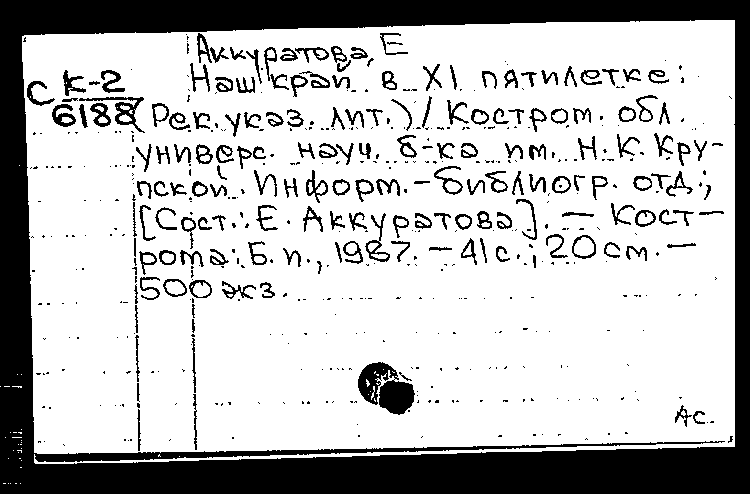 Аккуратова, Е
С К-2 Наш край в XI пятилетке:
6188 (Рек. указ. лит.) / Костром. обл.
универс. науч. б-ка им. Н. К. Круп-
пской. Информ.-библиогр. отд.;
[Сост.: Е. Аккуратова]. — Кост-
рома: Б. и., 1987. — 41 с.; 20 см. —
500 экз.
Ас.